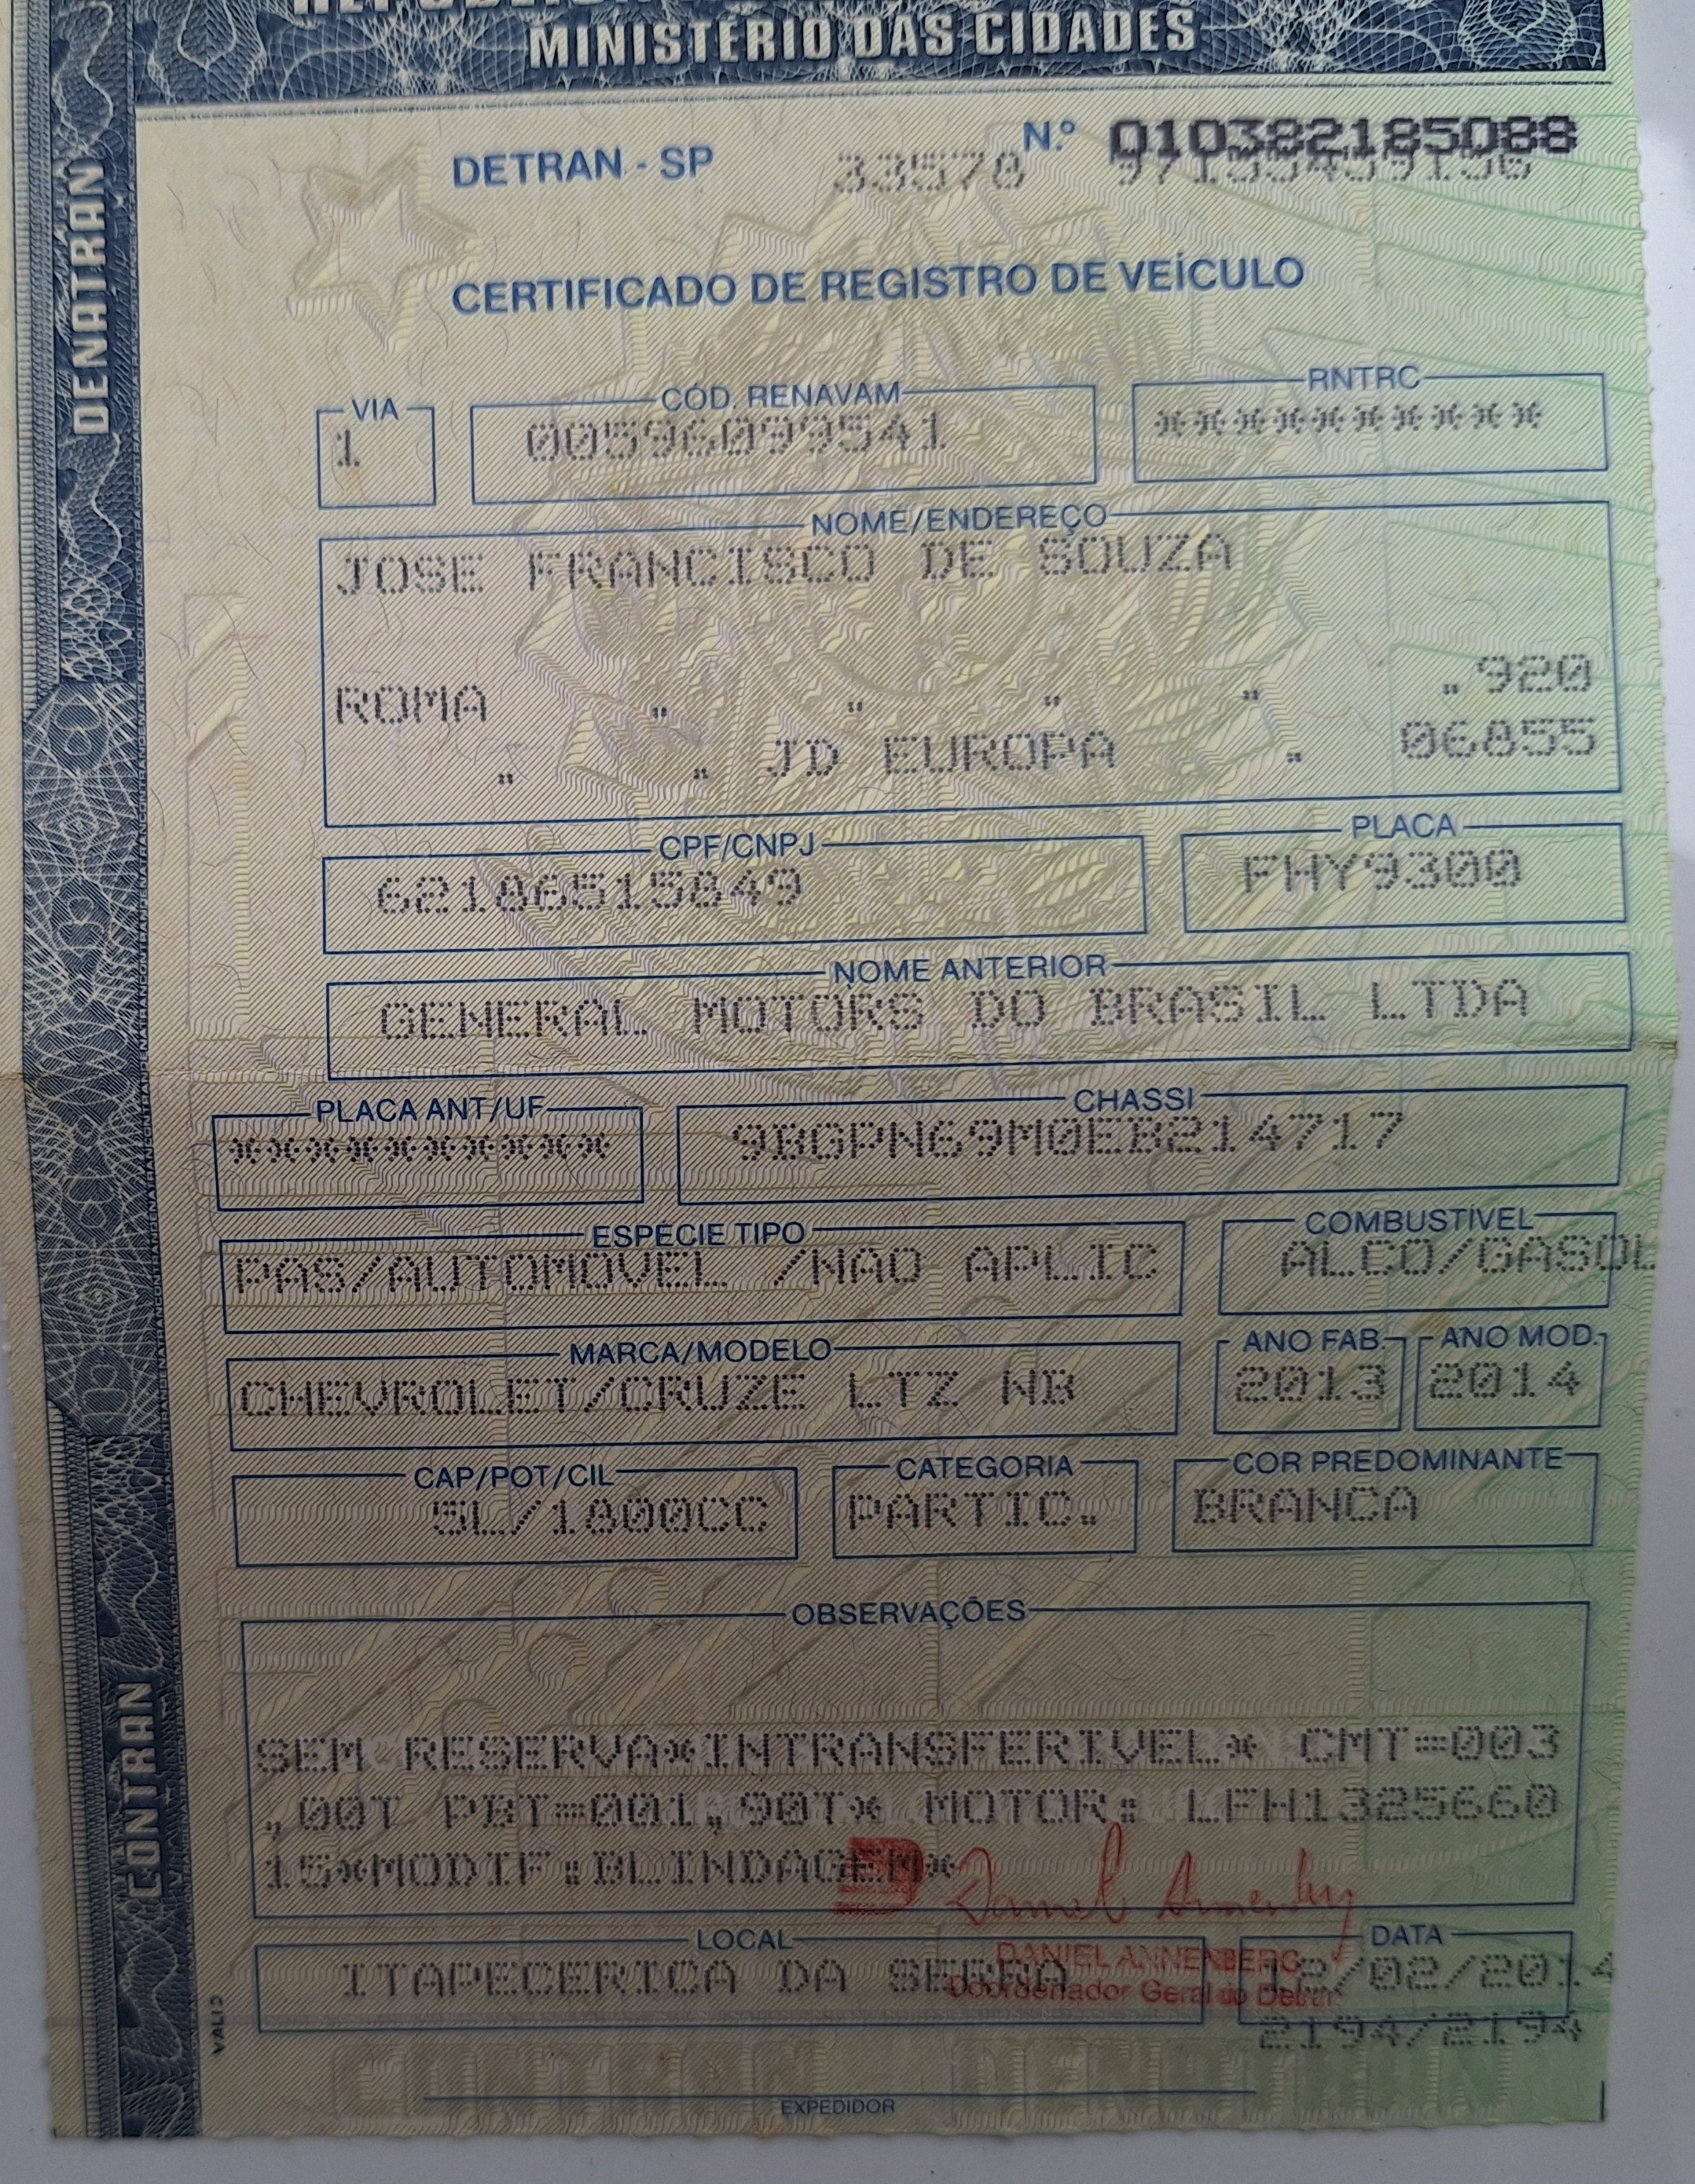 MINISTÉRIO DAS CIDADES
DENATRAN
DETRAN - SP N.º 010382185088
33578 97133439136
CERTIFICADO DE REGISTRO DE VEÍCULO
VIA CÓD. RENAVAM RNTRC
1 00596099541 **********
NOME/ENDEREÇO
JOSE FRANCISCO DE SOUZA
ROMA . . . . .920
. . JD EUROPA . 06855
CPF/CNPJ PLACA
62186515849 FHY9300
NOME ANTERIOR
GENERAL MOTORS DO BRASIL LTDA
PLACA ANT/UF CHASSI
********** 9BGPN69M0EB214717
ESPÉCIE TIPO COMBUSTÍVEL
PAS/AUTOMOVEL /NAO APLIC ALCO/GASOL
MARCA/MODELO ANO FAB. ANO MOD.
CHEVROLET/CRUZE LTZ NB 2013 2014
CAP/POT/CIL CATEGORIA COR PREDOMINANTE
5L/1800CC PARTIC. BRANCA
OBSERVAÇÕES
SEM RESERVA*INTRANSFERIVEL* CMT=003
,00T PBT=001,90T* MOTOR: LFH1325660
15*MODIF:BLINDAGEM*
CONTRAN
Daniel Annenberg
DANIEL ANNENBERG
Coordenador Geral do Detran
LOCAL DATA
ITAPECERICA DA SERRA 12/02/2014
2194/2194
CONTRAN DENATRAN
EXPEDIDOR